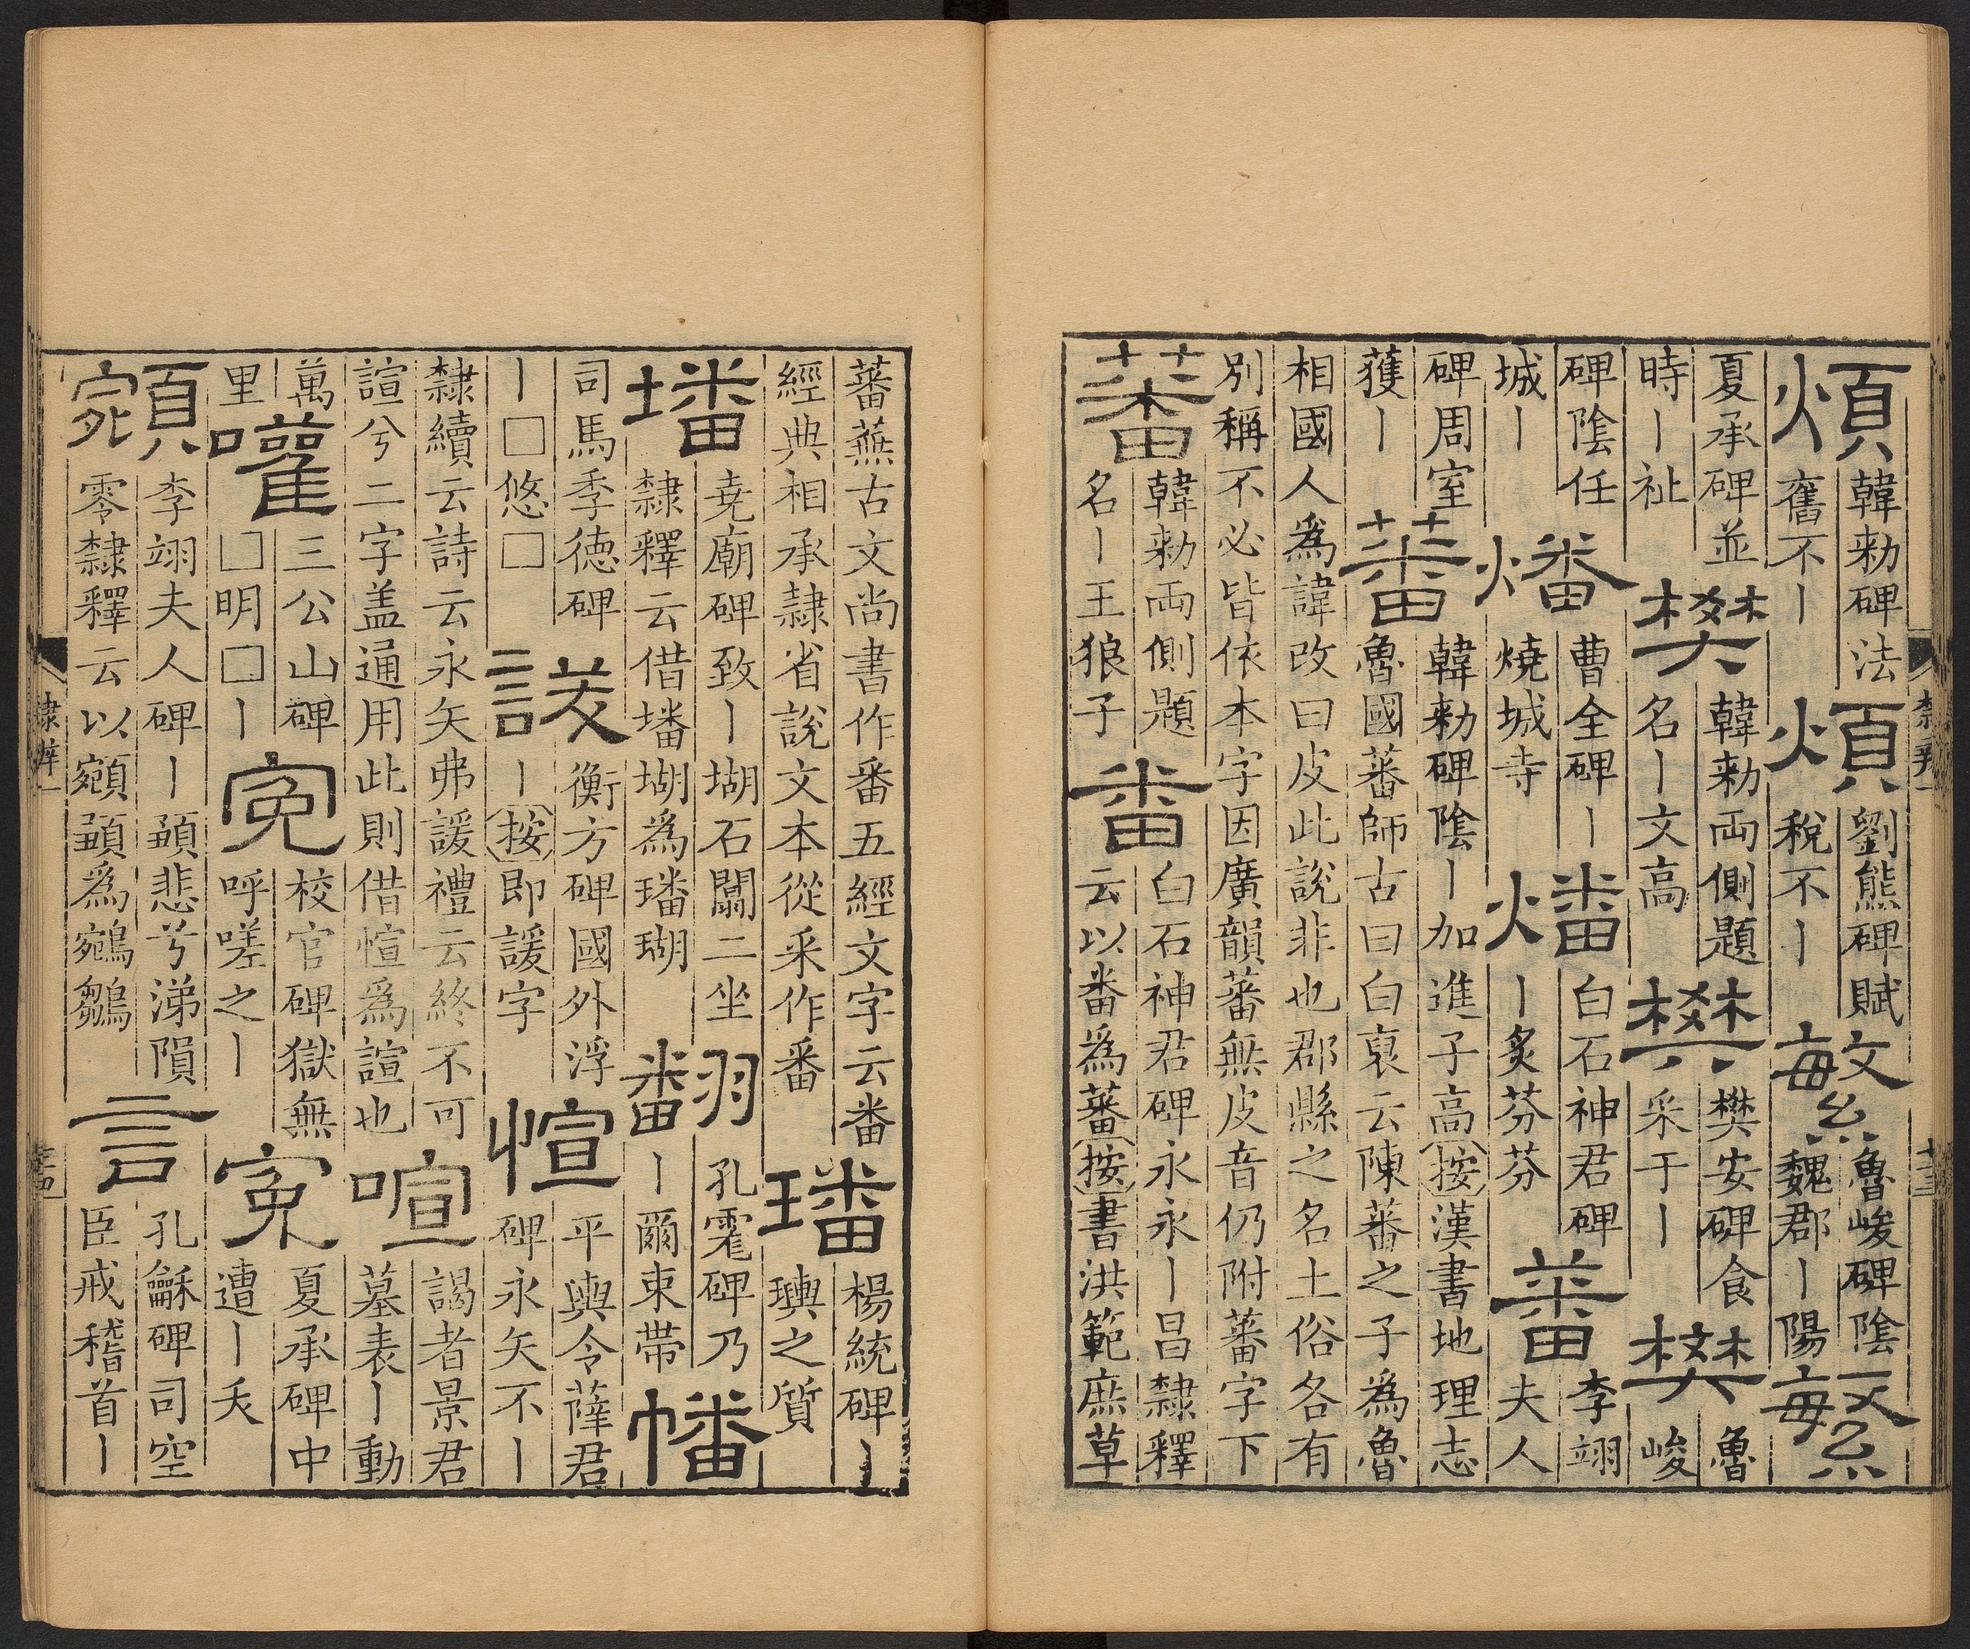 煩
韓勑碑法
舊不丨
煩
劉熊碑賦
稅不丨
繁
魯峻碑陰
魏郡丨陽
繁
夏承碑並
時丨祉
樊
韓勑兩側題
名丨文高
樊
樊安碑食
采于丨
樊
魯
峻
碑陰任
城丨
燔
曹全碑丨
燒城寺
燔
白石神君碑
丨炙芬芬
蕃
李翊
夫人
碑周室
獲丨
蕃
韓勑碑陰丨加進子高按漢書地理志
魯國蕃師古曰白裒云陳蕃之子為魯
相國人為諱改曰皮此說非也郡縣之名土俗各有
別稱不必皆依本字因廣韻蕃無皮音仍附蕃字下
蕃
韓勑兩側題
名丨王狼子
番
白石神君碑永永丨昌隸釋
云以番為蕃按書洪範庶草
隸辨一
十三
蕃蕪古文尚書作番五經文字云番
經典相承隸省說文本從釆作番
璠
楊統碑丨
璵之質
墦
堯廟碑致丨堋石闕二坐
隸釋云借墦堋為璠瑚
翻
孔霳碑乃
丨爾束帶
幡
司馬季德碑
丨□悠□
諼
衡方碑國外浮
丨按即諼字
愃
平輿令薛君
碑永矢不丨
隸續云詩云永矢弗諼禮云終不可
諠兮二字盖通用此則借愃為諠也
喧
謁者景君
墓表丨動
萬
里
嚾
三公山碑
□明□丨
冤
校官碑獄無
呼嗟之丨
冤
夏承碑中
遭丨夭
李翊夫人碑丨悲兮涕隕
零隸釋云以為鵷鶵
言
孔龢碑司空
臣戒稽首丨
隸辨一